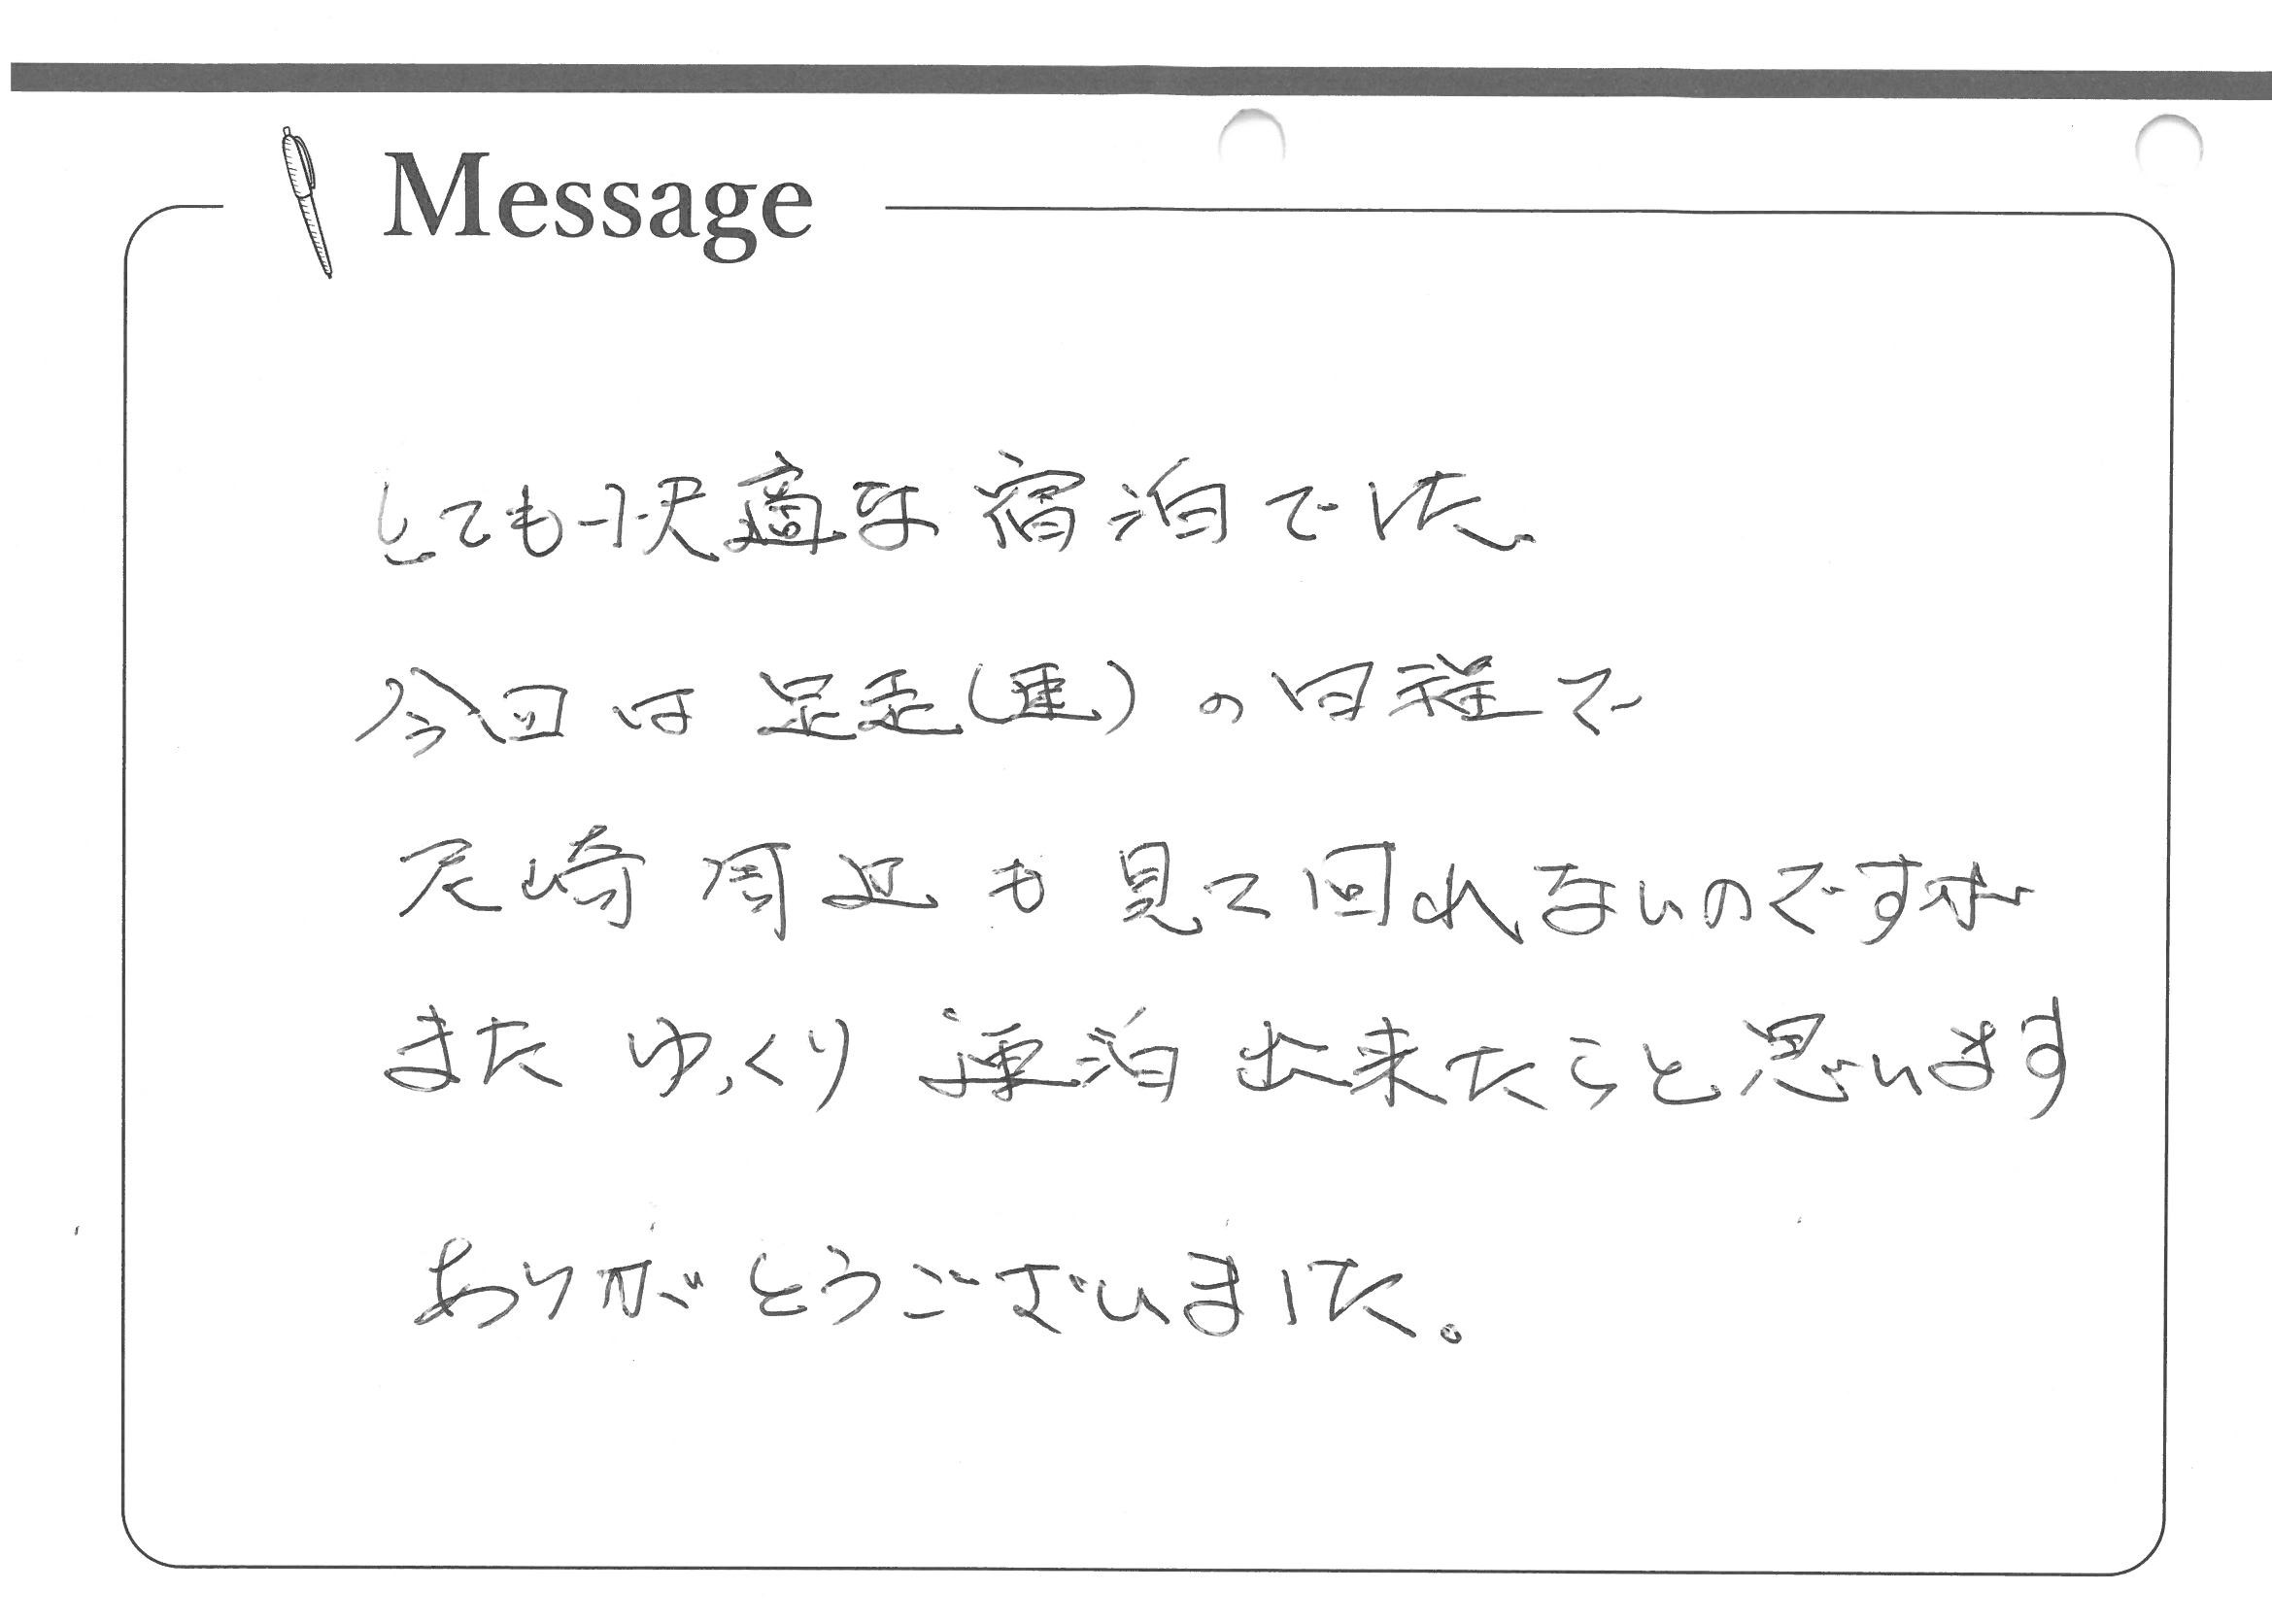 Message
とても快適な宿泊でした
今回は足走(連)の日程で
尼崎周辺も見て回れないのですが
またゆっくり連泊出来たらと思います
ありがとうございました。